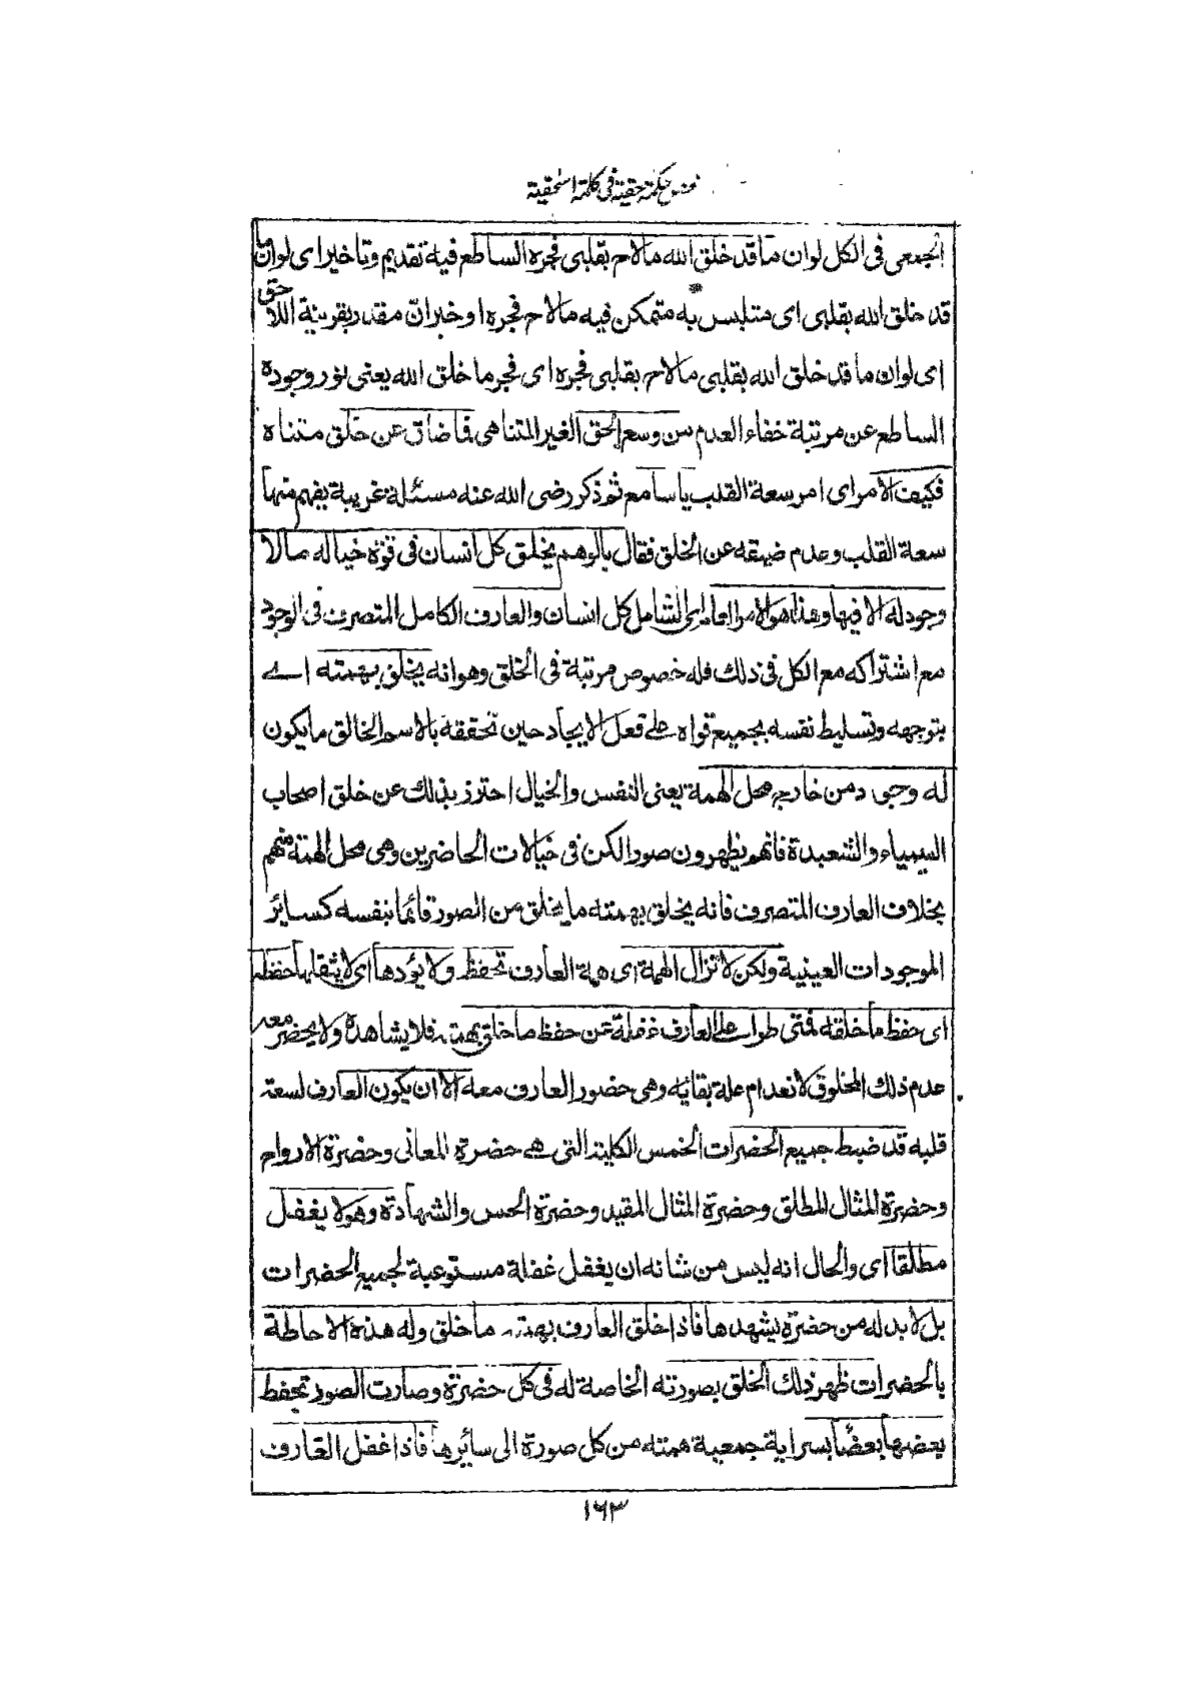 فص حكمة حقية فى كلمة اسحقية
الجمعى فى الكل لوان ما قد خلق الله مالاح بقلبى فجره الساطع فيه تقديم وتاخير اى لوان ما
قد خلق الله بقلبى اى متلبس به متمكن فيه مالاح فجره او خبران مقدر بقرينة اللاحق
اى لوان ما قد خلق الله بقلبى مالاح بقلبى فجره اى فجر ما خلق الله يعنى نور وجوده
الساطع عن مرتبة خفاء العدم من وسع الحق الغير المتناهى فما ضاق عن خلق متناه
فكيف الامر اى امر سعة القلب يا سامع ثم ذكر رضى الله عنه مسئلة غريبة يفهم منها
سعة القلب وعدم ضيقه عن الخلق فقال بالوهم يخلق كل انسان فى قوة خياله مالا
وجود له الا فيها وهذا هو الامر العام اى الشامل كل انسان والعارف الكامل المتصرف فى الوجود
مع اشتراكه مع الكل فى ذلك فله خصوص مرتبة فى الخلق وهو انه يخلق بهمته اے
بتوجهه وتسليط نفسه بجميع قواه على فعل الايجاد حين تحققه بالاسم الخالق ما يكون
له وجود من خارج محل الهمة يعنى النفس والخيال احترز بذلك عن خلق اصحاب
السيمياء والشعبدة فانهم يظهرون صورا لكن فى خيالات الحاضرين وهى محل الهمة منهم
بخلاف العارف المتصرف فانه يخلق بهمته ما يخلق من الصور قائما بنفسه كسائر
الموجودات العينية ولكن لا تزال الهمة اى همة العارف تحفظه ولا يؤدها اى لا يثقلها حفظه
اى حفظ ما خلقه فمتى طرات على العارف غفلة عن حفظ ما خلق بهمته فلا يشاهده ولا يحضر معه
عدم ذلك المخلوق لانعدام علة بقائه وهى حضور العارف معه الا ان يكون العارف لسعة
قلبه قد ضبط جميع الحضرات الخمس الكلية التى هے حضرة المعانى وحضرة الارواح
وحضرة المثال المطلق وحضرة المثال المقيد وحضرة الحس والشهادة وهو لا يغفل
مطلقا اى والحال انه ليس من شانه ان يغفل غفلة مستوعبة لجميع الحضرات
بل لا بد له من حضرة يشهدها فاذا خلق العارف بهمته ما خلق وله هذه الاحاطة
بالحضرات ظهر ذلك الخلق بصورته الخاصة له فى كل حضرة وصارت الصور تحفظ
بعضها بعضا بسراية جمعية همته من كل صورة الى سائرها فاذا غفل العارف
١٦٣